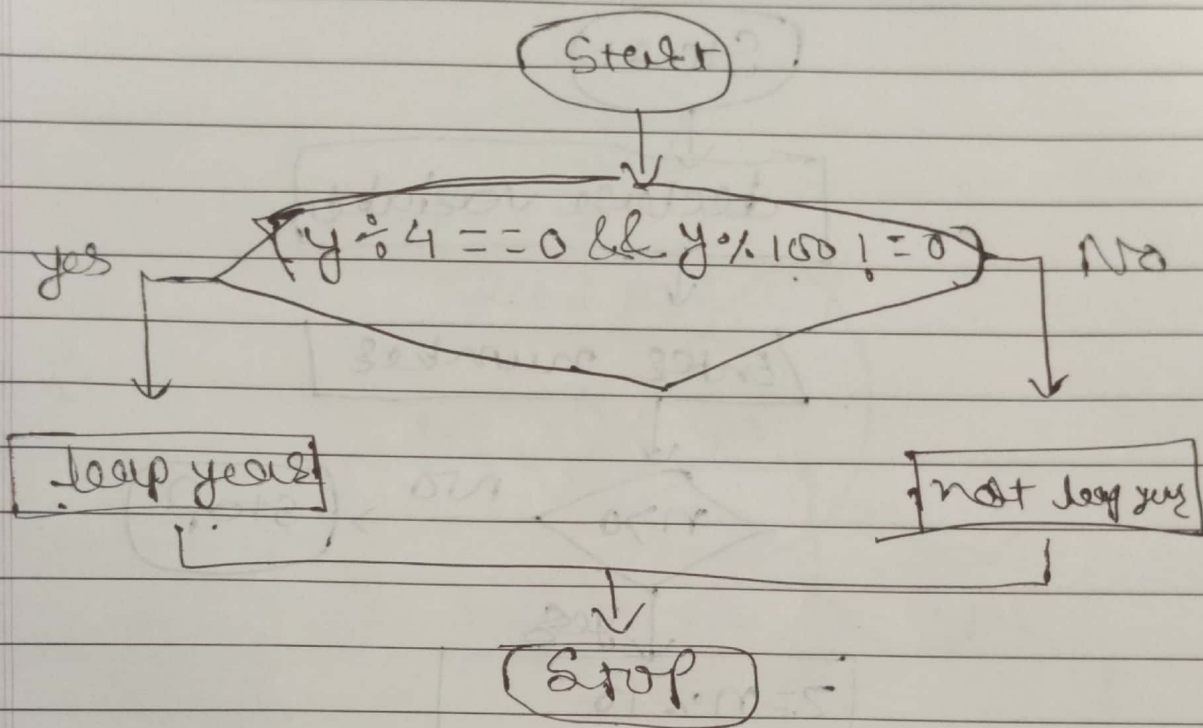 Start
(y % 4 == 0 && y % 100 ! = 0)
yes
No
leap year
not leap year
Stop